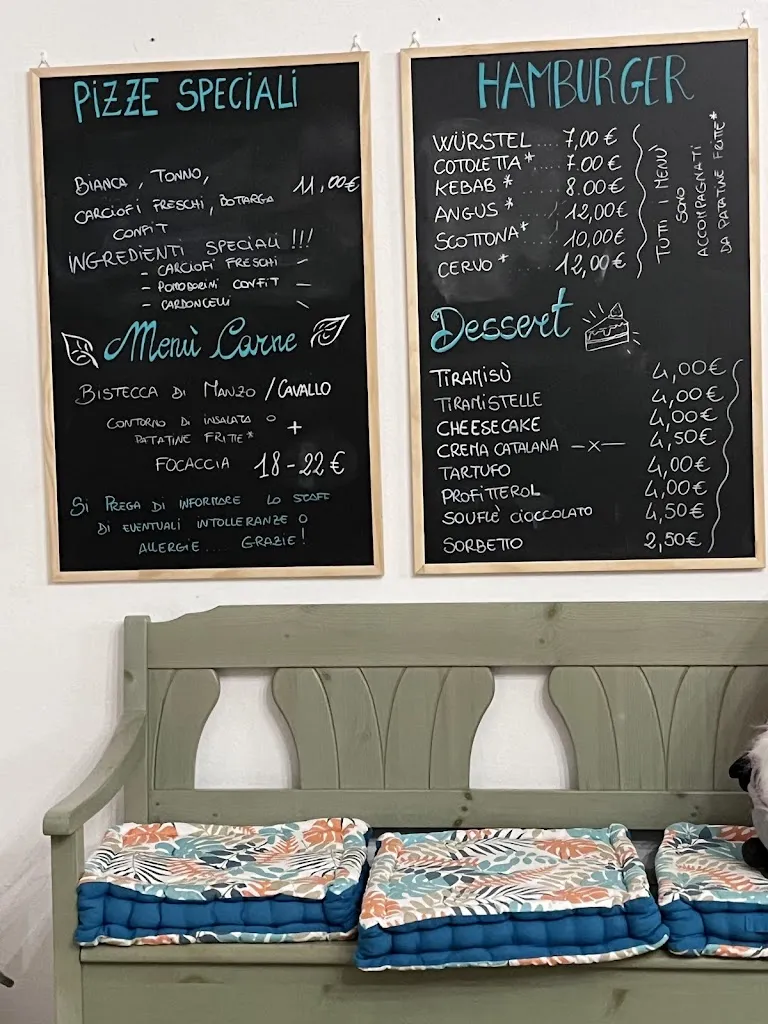 PIZZE SPECIALI
BIANCA, TONNO,
11,00€
CARCIOFI FRESCHI, BOTARGA
CONFIT
INGREDIENTI SPECIALI !!!
- CARCIOFI FRESCHI -
- POMODORINI CONFIT -
- CARDONCELLI
Menù Carne
BISTECCA DI MANZO / CAVALLO
CONTORNO DI INSALATA O
PATATINE FRITTE* +
FOCACCIA 18-22€
SI PREGA DI INFORMARE LO STAFF
DI EVENTUALI INTOLLERANZE O
ALLERGIE.... GRAZIE!
HAMBURGER
WÜRSTEL .... 7,00€
COTOLETTA* ... 7.00€
KEBAB* ..... 8.00€
ANGUS* ..... 12,00€
SCOTTONA* .... 10,00€
CERVO* ..... 12,00€
TUTTI I MENÙ
SONO
ACCOMPAGNATI
DA PATATINE FRITTE*
Dessert
TIRAMISÙ 4,00€
TIRAMISTELLE 4,00€
CHEESECAKE 4,00€
CREMA CATALANA -x- 4,50€
TARTUFO 4,00€
PROFITTEROL 4,00€
SOUFLÈ CIOCCOLATO 4,50€
SORBETTO 2,50€